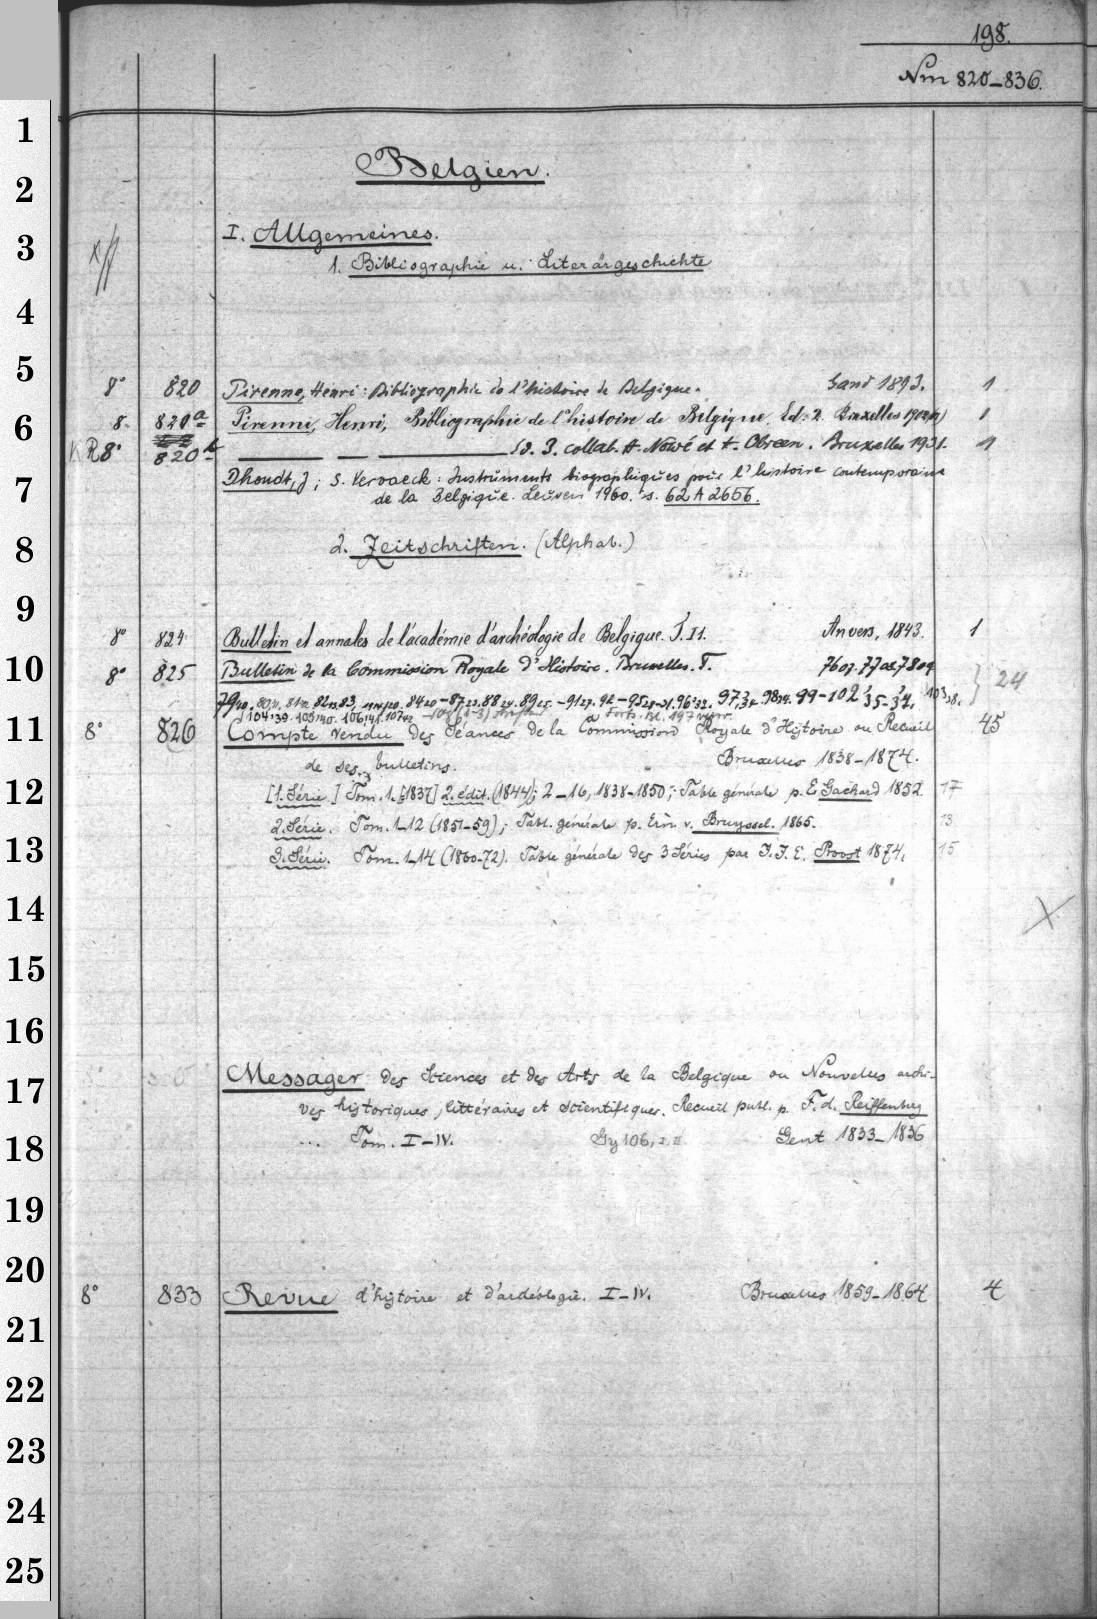 198.
Nm 820–836.
Belgien.
I. Allgemeines.
1. Bibliographie u. Literärgeschichte
8° 820 Pirenne, Henri: Bibliographie de l'histoire de Belgique. Gand 1893. 1
8. 820a Pirenne, Henri, Bibliographie de l'histoire de Belgique Ed. 2. Bruxelles 1902 1
R 8° 820b — — — Ed. 3. collab. H. Nowé et H. Obreen. Bruxelles 1931. 1
Dhondt, J; S. Vervaeck: Instruments biographiques pour l'histoire contemporaine
de la Belgique. Leuven 1960. s. 62 A 2656.
2. Zeitschriften. (Alphab.)
8° 824 Bulletin et annales de l'académie d'archéologie de Belgique. T. I1. Anvers, 1843. 1
8° 825 Bulletin de la Commission Royale d'Histoire. Bruxelles. T. 7607. 7708, 7809 24
8° 826 Compte rendu des séances de la Commission Royale d'Histoire ou Recueil 45
de ses bulletins. Bruxelles 1838–1874.
[1. Série] Tom. 1. [1837] 2. édit. (1844); 2–16, 1838–1850; Table générale p. E Gachard 1852. 17
2. Série. Tom. 1–12 (1851–59); Tabl. générale p. Ern v. Bruyssel. 1865. 13
3. Série. Tom. 1–14 (1860–72). Table générale des 3 Séries par J. J. E. Proost 1874. 15
Messager des Sciences et des Arts de la Belgique ou Nouvelles archi-
ves historiques, littéraires et scientifiques. Recueil publ. p. F. d. Reiffenberg
... Tom. I–IV. Gy 106, I. II Gent 1833–1836
8° 833 Revue d'histoire et d'archéologie. I–IV. Bruxelles 1859–1864 4
1
2
3
4
5
6
7
8
9
10
11
12
13
14
15
16
17
18
19
20
21
22
23
24
25